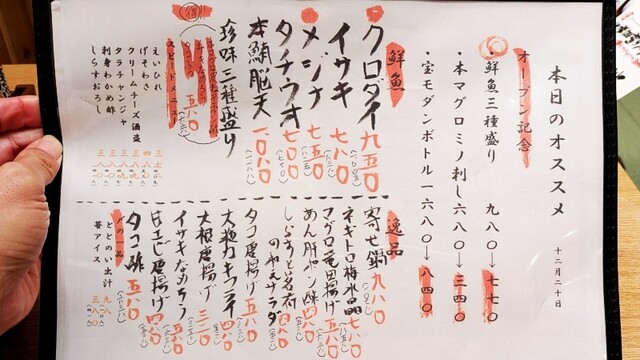 本日のオススメ
十二月二十日
オープン記念
・鮮魚三種盛り 九八〇→七七〇
・本マグロミノ刺し 六八〇→三四〇
・宝モダンボトル一六八〇→八四〇
鮮魚
・クロダイ 九五〇
イサキ 七八〇
・メジナ 七五〇
タチウオ 七〇〇
本鮪脳天
珍味三種盛り 一〇八〇
五八〇
スピードメニュー
えいひれ
げそわさ
クリームチーズ酒盗
タラチャンジャ
刺身わかめ酢
しらすおろし
逸品
寄せ鍋 九八〇
ネギトロ梅水晶 七八〇
マグロ竜田揚げ 五八〇
あん肝ポン酢 四八〇
しらすと茗荷
のやっこサラダ
タコ唐揚げ 五八〇
大粒カキフライ 四八〇
大根唐揚げ 三三〇
イサキなめろう 五八〇
甘エビ唐揚げ 四八〇
タコ酢 五八〇
〆の一品
ととのい出汁
苺アイス 三八〇